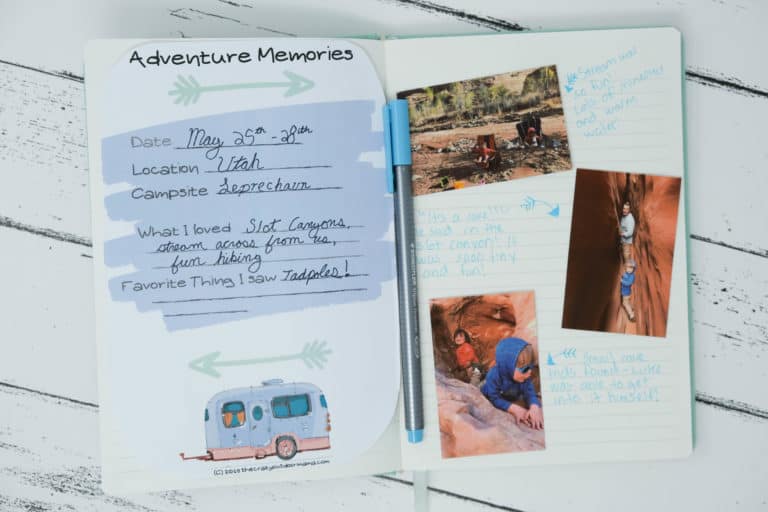 Adventure Memories
Date May 25th - 28th
Location Utah
Campsite Leprechaun
What I loved Slot Canyons,
stream across from us,
fun hiking
Favorite Thing I saw Tadpoles!
(C) 2019 thecrazyoutdoormama.com
Stream was
so fun!
Lots of
and warm
water
"Its a cave!"
he said in the
slot canyon! It
was soooo tiny
and fun!
Small cave
kids found - Luke
was able to get
into it himself!